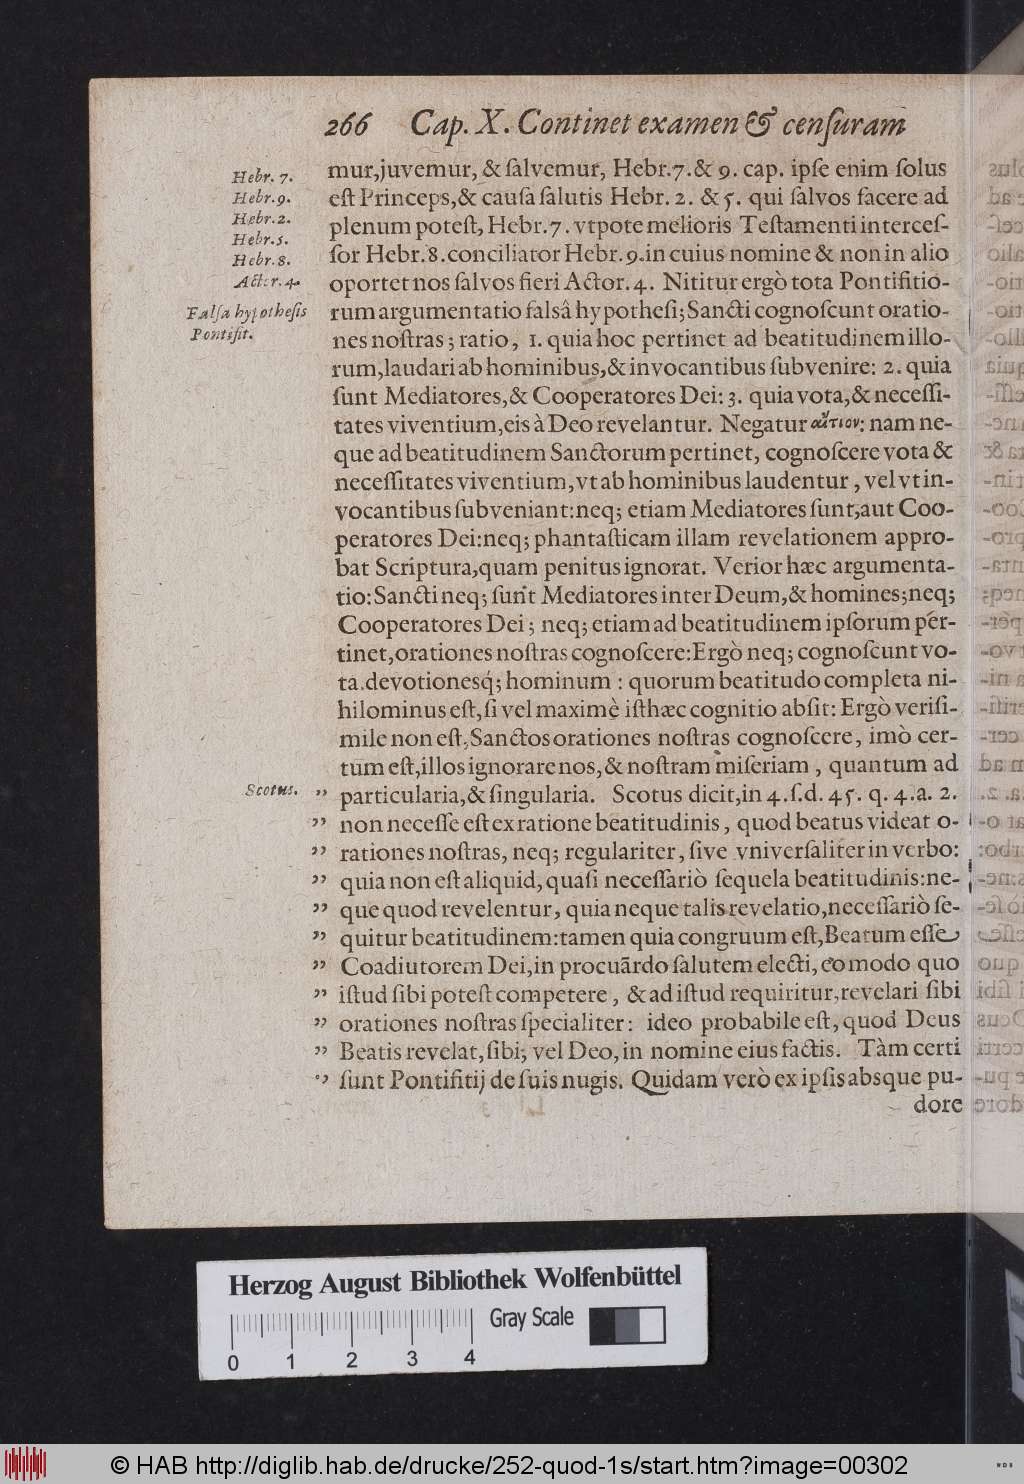 266 Cap. X. Continet examen & cenſuram
Hebr. 7.
Hebr. 9.
Hebr. 2.
Hebr. 5.
Hebr. 8.
Actor. 4.
Falſa hypotheſis
Pontifit.
mur,juvemur, & ſalvemur, Hebr.7.& 9. cap. ipſe enim ſolus
eſt Princeps,& cauſa ſalutis Hebr. 2. & 5. qui ſalvos facere ad
plenum poteſt, Hebr.7. vtpote melioris Teſtamenti interceſ-
ſor Hebr.8.conciliator Hebr.9.in cuius nomine & non in alio
oportet nos ſalvos fieri Actor.4. Nititur ergò tota Pontifitio-
rum argumentatio falsâ hypotheſi; Sancti cognoſcunt oratio-
nes noſtras; ratio, 1. quia hoc pertinet ad beatitudinem illo-
rum,laudari ab hominibus,& invocantibus ſubvenire: 2. quia
ſunt Mediatores,& Cooperatores Dei: 3. quia vota,& neceſſi-
tates viventium,eis à Deo revelantur. Negatur αἴτιον: nam ne-
que ad beatitudinem Sanctorum pertinet, cognoſcere vota &
neceſſitates viventium,vt ab hominibus laudentur, vel vt in-
vocantibus ſubveniant:neq; etiam Mediatores ſunt,aut Coo-
peratores Dei:neq; phantaſticam illam revelationem appro-
bat Scriptura,quam penitus ignorat. Verior hæc argumenta-
tio: Sancti neq; ſunt Mediatores inter Deum,& homines;neq;
Cooperatores Dei; neq; etiam ad beatitudinem ipſorum pér-
tinet,orationes noſtras cognoſcere:Ergò neq; cognoſcunt vo-
ta.devotionesq́; hominum : quorum beatitudo completa ni-
hilominus eſt,ſi vel maximè iſthæc cognitio abſit: Ergò veriſi-
mile non eſt,Sanctos orationes noſtras cognoſcere, imò cer-
tum eſt,illos ignorare nos,& noſtram miſeriam, quantum ad
Scotus.
” particularia,& ſingularia. Scotus dicit,in 4.ſ.d. 45. q. 4.a. 2.
” non neceſſe eſt ex ratione beatitudinis, quod beatus videat o-
” rationes noſtras, neq; regulariter, ſive vniverſaliter in verbo:
” quia non eſt aliquid,quaſi neceſſariò ſequela beatitudinis:ne-
” que quod revelentur, quia neque talis revelatio,neceſſariò ſe-
” quitur beatitudinem:tamen quia congruum eſt,Beatum eſſe
” Coadiutorem Dei,in procuãrdo ſalutem electi,eo modo quo
” iſtud ſibi poteſt competere, & ad iſtud requiritur,revelari ſibi
” orationes noſtras ſpecialiter: ideo probabile eſt,quod Deus
” Beatis revelat,ſibi; vel Deo,in nomine eius factis. Tàm certi
” ſunt Pontifitij de ſuis nugis. Quidam verò ex ipſis absque pu-
dore
Herzog August Bibliothek Wolfenbüttel
Gray Scale
0 1 2 3 4
© HAB http://diglib.hab.de/drucke/252-quod-1s/start.htm?image=00302